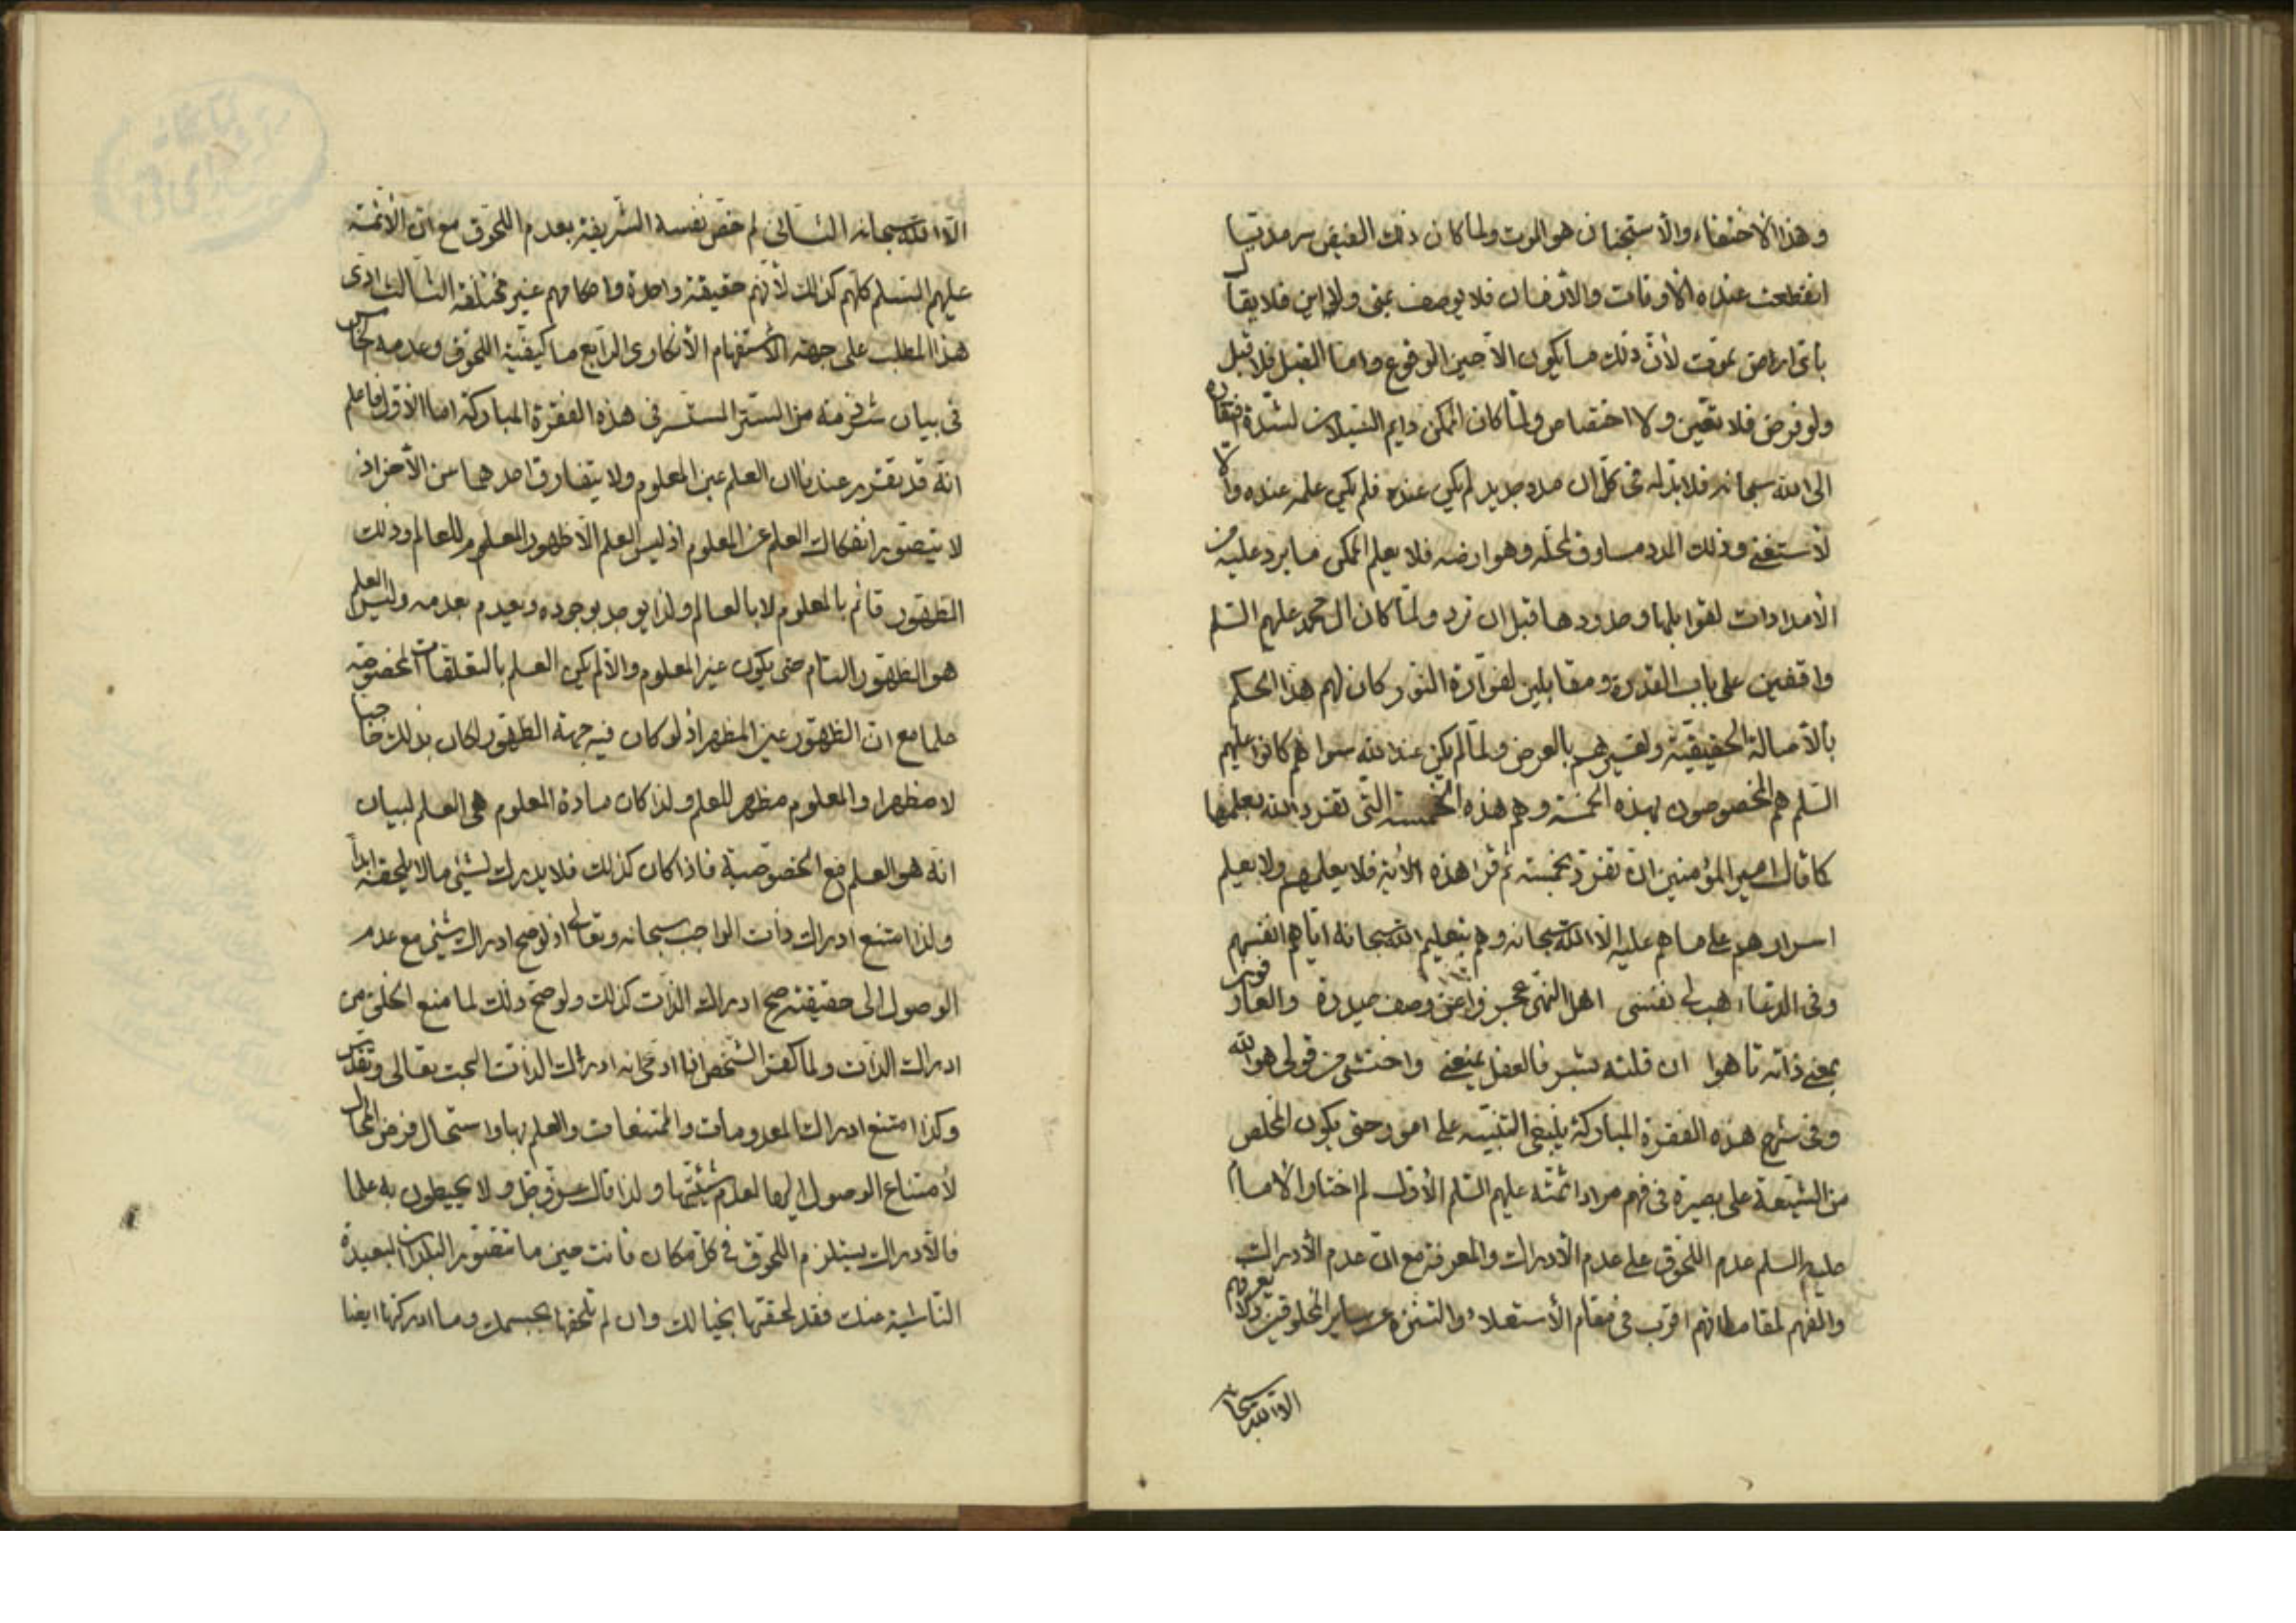 وهذا الاختفاء والاستجنان هو الموت ولما كان ذلك الفيض سرمديا
انقطعت عنده الاوقات والازمان فلا يوصف بمتى ولا اين فلا يقال
باى ارض تموت لأن ذلك ما يكون الا حين الوقوع واما القبل فلا قبل
ولو فرض فلا تعين ولا اختصاص ولما كان الممكن دايم السيلان لشدة افتقاره
الى الله سبحانه فلا بد له فى كل ان مدد جديد لم يكن عنده فلم يكن علمه عنده والا
لأستغنى وذلك المدد مساوق لمحله وهو ارضه فلا يعلم الممكن ما يرد عليه من
الأمدادات لقوابلها وحدودها قبل ان ترد ولما كان ال محمد عليهم السلم
واقفين على باب القدرة ومقابلين لفوارة النور كان لهم هذا الحكم
بالأصالة الحقيقية ولغيرهم بالعرض ولما لم يكن عند الله سواهم كانوا عليهم
السلم هم المخصوصون بهذه الخمسة وهم هذه الخمسة التى تفرد الله بعلمها
كما قال امير المؤمنين ان تفرد بخمسة ثم قرا هذه الأية فلا يعلمهم ولا يعلم
اسرارهم على ما هم عليه الا الله سبحانه وهم بتعليم الله سبحانه اياهم انفسهم
وفى الدعاء هب لى نفسى اهل النهى عجزوا عن وصف حيدرة والعارفون
بمعنى ذاته تاهوا ان قلت بشر فالعقل يمنعنى واختشى من قولى هو الله
وفى شرح هذه الفقرة المباركة ينبغى التنبيه على امور حتى يكون المخلص
من الشيعة على بصيرة فى فهم مراد ائمته عليهم السلم الأول لم اختار الامام
عليه السلم عدم اللحوق على عدم الأدراك والمعرفة مع ان عدم الأدراك
والفهم لمقاماتهم اقرب فى مقام الأستعلاء والتنزه عن ساير المخلوقين ولا يعرفهم
الا الله سبحا
الا الله سبحانه الثانى لم خص نفسه الشريفة بعدم اللحوق مع ان الأئمة
عليهم السلم كلهم كذلك لأنهم حقيقة واحدة واحكامهم غير مختلفة الثالث ادى
هذا المطلب على جهة الأستفهام الأنكارى الرابع ما كيفية اللحوق وعدمه الخامس
فى بيان شرذمة من السر المستسر فى هذه الفقرة المباركة اما الأول فاعلم
انه قد تقرر عندنا ان العلم عين المعلوم ولا يتفارق احدهما من الأخر اذ
لا يتصور انفكاك العلم عن المعلوم اذ ليس العلم الا ظهور المعلوم للعالم وذلك
الظهور قائم بالمعلوم لا بالعالم ولذا يوجد بوجوده ويعدم بعدمه وليس العلم
هو الظهور التام حتى يكون غير المعلوم والا لم يكن العلم بالتعلقات المخصوصة
علما مع ان الظهور عين المظهر اذ لو كان فيه جهة الظهور لكان بذلك حاجبا
لا مظهرا والمعلوم مظهر للعلم ولذا كان مادة المعلوم هى العلم لبيان
انه هو العلم مع الخصوصية فاذا كان كذلك فلا يدرك لشيئ ما لا يلحقه ابدا
ولذا امتنع ادراك ذات الواجب سبحانه وتعالى اذ لو صح ادراك شيئ مع عدم
الوصول الى حقيقته صح ادراك الذات كذلك ولو صح ذلك لما منع الخلق من
ادراك الذات ولما كفر الشخص اذا ادعى انه ادراك الذات البحت تعالى وتقدس
وكذا امتنع ادراك المعدومات والممتنعات والعلم بها واستحال فرض المحال
لأمتناع الوصول اليها لعدم شيئيتها ولذا قال عز وجل ولا يحيطون به علما
فالأدراك يستلزم اللحوق فى كل مكان فانت حين ما تتصور البلدان البعيدة
النائية عنك فقد لحقتها بخيالك وان لم تلحقها بجسمك وما ادركتها ايضا